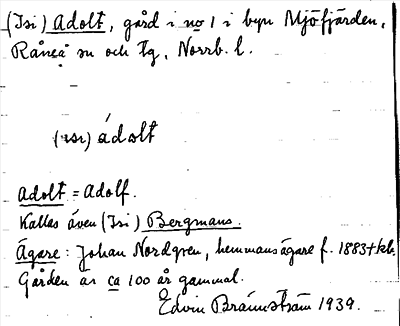 (Isi) Adolt, gård i no 1 i byn Mjöfjärden,
Råneå sn och tg, Norrb. l.
(ısı) ádolt
Adolt = Adolf.
Kallas även (Isi) Bergmans.
Ägare: Johan Nordgren, hemmansägare f. 1883
Gården är ca 100 år gammal.
Edvin Brännström 1939.